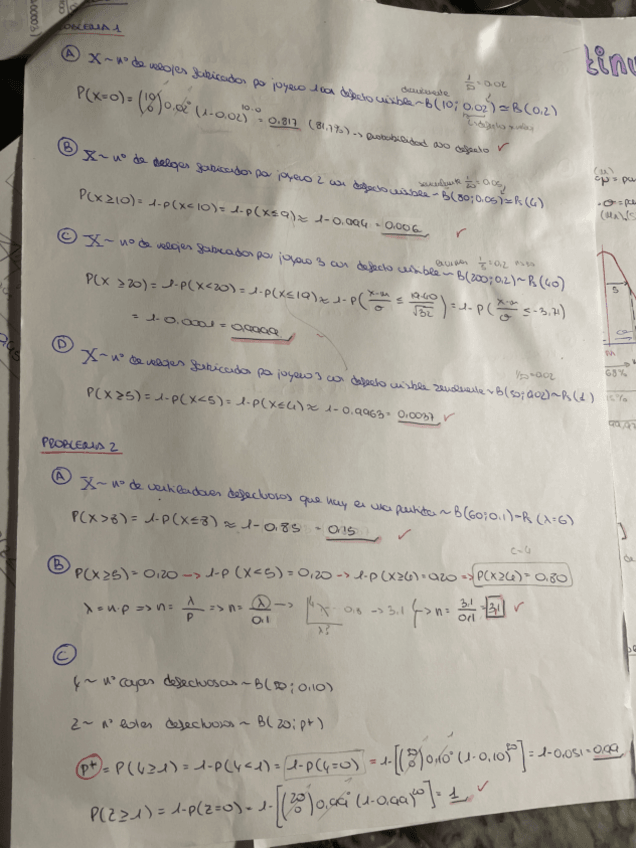 PROBLEMA 1
(A) X ~ nº de relojes fabricados por joyero 1 con defecto visible ~ B(10; 0.02) ≈ B(0.2)
1/50 = 0.02
P(X=0) = (10 0) 0.02⁰ (1-0.02)¹⁰⁻⁰ = 0.817 (81,7%) -> probabilidad no defecto ✓
(B) X ~ nº de relojes fabricados por joyero 2 con defecto visible ~ B(80; 0.05) ≈ Ps(4)
1/20 = 0.05
P(X≥10) = 1-P(X<10) = 1-P(X≤9) ≈ 1-0.994 = 0.006 ✓
(C) X ~ nº de relojes fabricados por joyero 3 con defecto visible ~ B(200; 0.2) ~ Ps(40)
1/5 = 0.2
P(X ≥20) = 1-P(X<20) = 1-P(X≤19) ≈ 1-P(x-m/σ ≤ 19-40/√32) = 1-P(x-m/σ ≤ -3,71)
= 1-0.0001 = 0.9999 ✓
(D) X ~ nº de relojes fabricados por joyero 3 con defecto visible ~ B(50; 0.02) ~ Ps(1)
1/50 = 0.02
P(X≥5) = 1-P(X<5) = 1-P(X≤4) ≈ 1-0.9963 = 0.0037 ✓
PROBLEMA 2
(A) X ~ nº de ventiladores defectuosos que hay en una partida ~ B(60; 0.1) ~ Ps(λ=6)
P(X>8) = 1-P(X≤8) ≈ 1-0,85 = 0.15 ✓
c=4
(B) P(X≥5) = 0,20 -> 1-P(X<5) = 0,20 -> 1-P(X≤4) = 0,20 => P(X≤4) = 0,80
λ = n·p => n = λ/p => n = λ/0.1 -> 0.8 -> 3.1 -> n = 3.1/0.1 = 31 ✓
(C)
Y ~ nº cajas defectuosas ~ B(50; 0,10)
Z ~ nº lotes defectuosos ~ B(20; p*)
p* = P(Y≥1) = 1-P(Y<1) = 1-P(Y=0) = 1-[(50 0) 0,10⁰ (1-0,10)⁵⁰] = 1-0,051 = 0,99
P(Z≥1) = 1-P(Z=0) = 1-[(20 0) 0,99⁰ (1-0,99)²⁰] = 1 ✓
tinu
68%